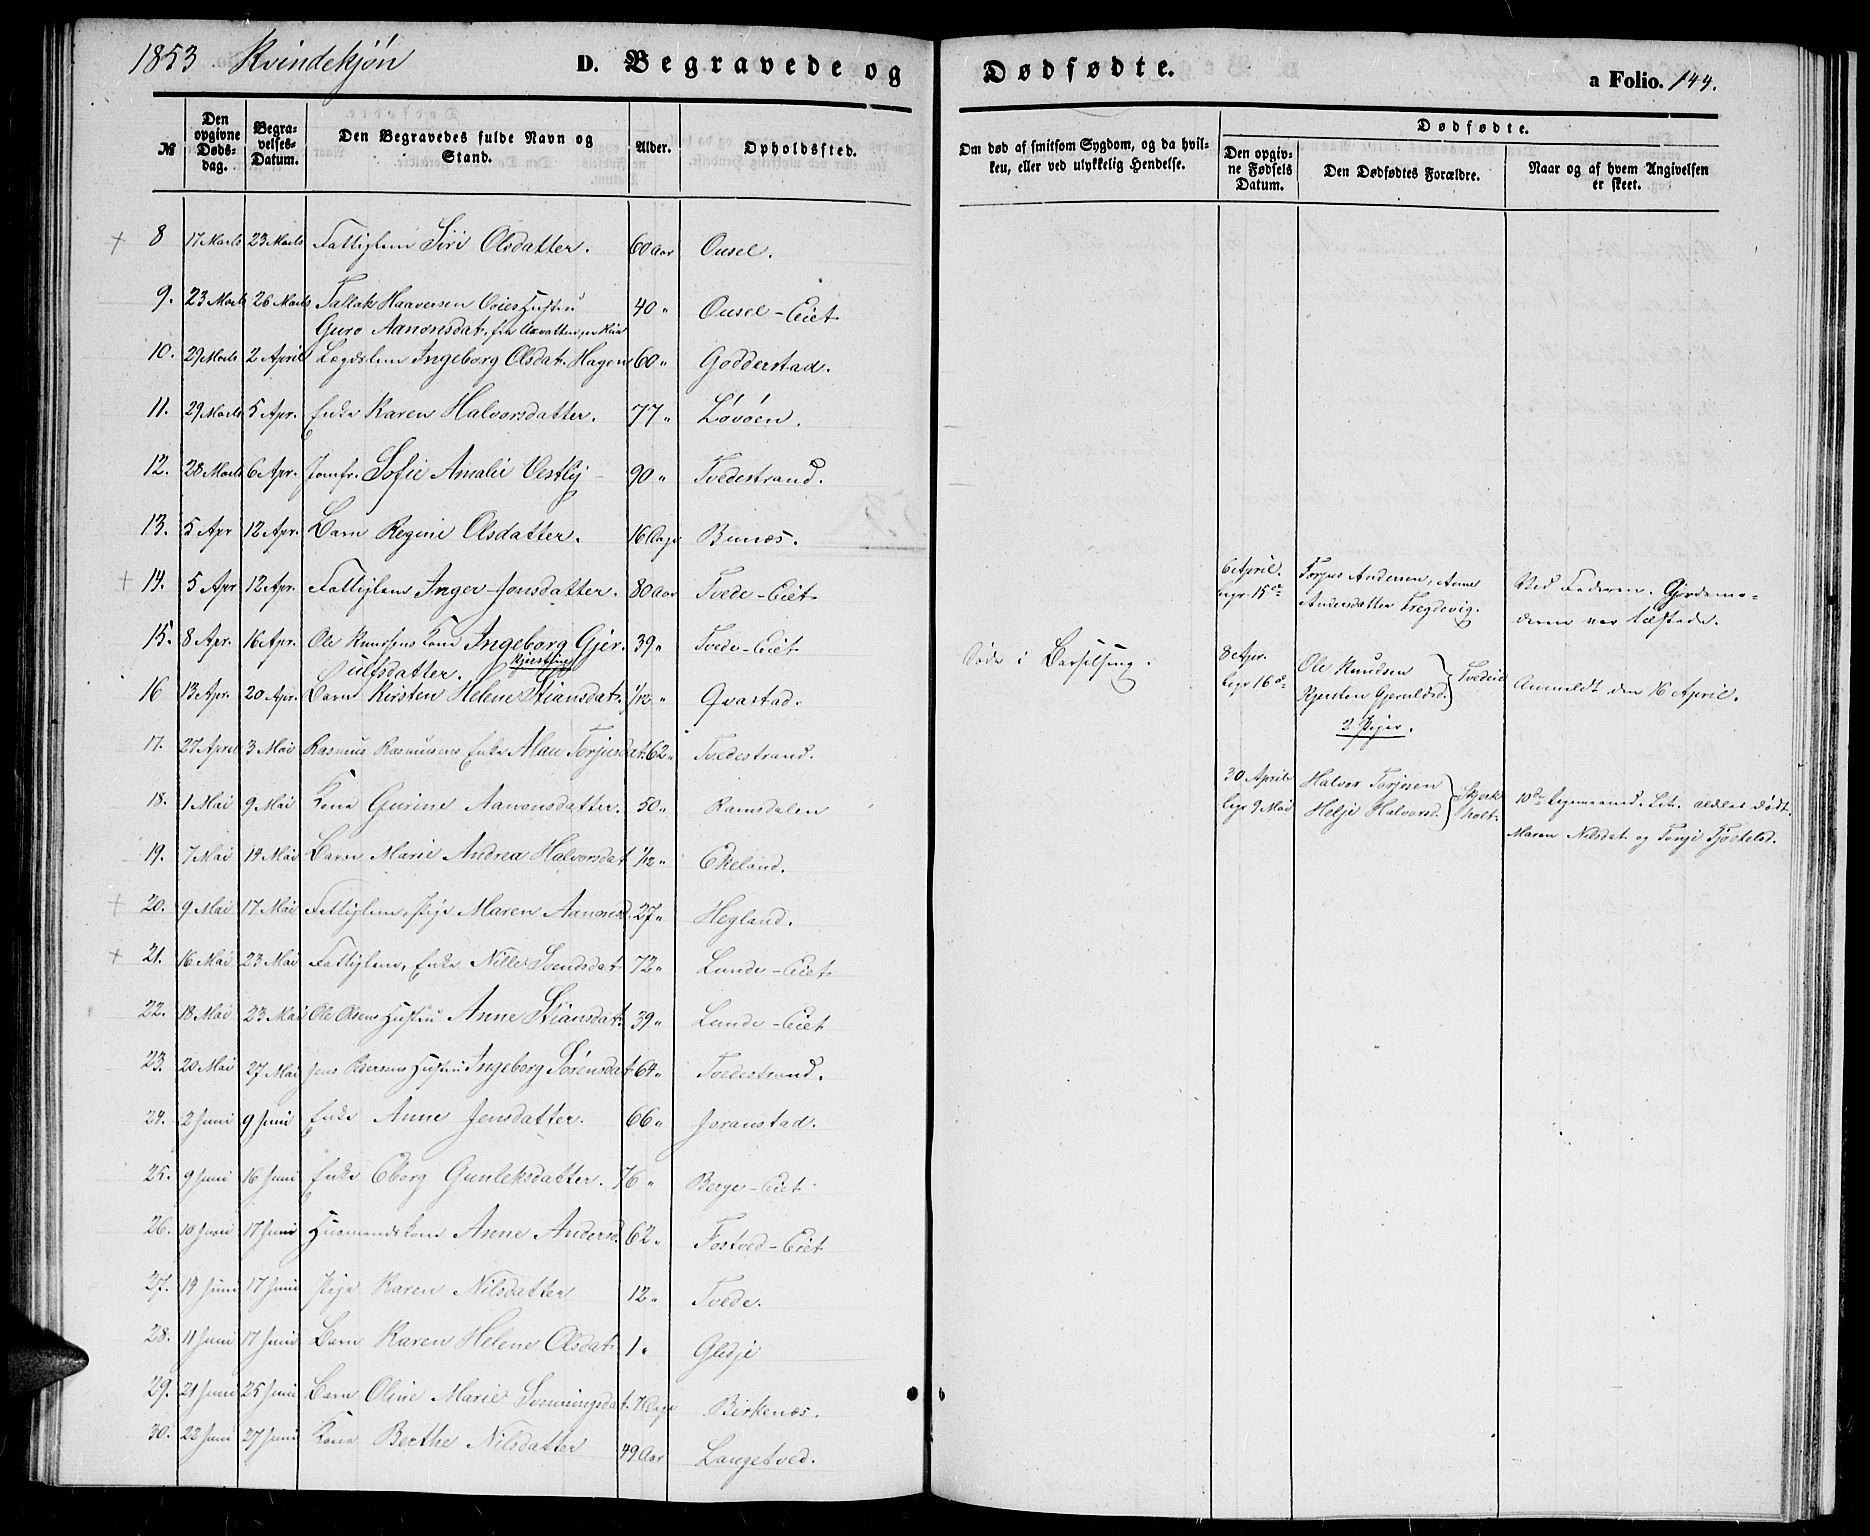 1853 Kvindekjøn D. Begravede og Dødfødte. a Folio. 144.
№ Den opgivne Døds-dag. Begra-velses-Datum. Den Begravedes fulde Navn og Stand. Alder. Opholdssted. Om død af smitsom Sygdom, og da hvil-ken, eller ved ulykkelig Hendelse. Dødfødte. Den opgiv-ne Fødsels Datum. Den Dødfødtes Forældre. Naar og af hvem Angivelsen er skeet.
8 17 Marts 23 Marts Fattiglem Siri Olsdatter. 60 Aar Ousel.
9. 23 Marts 26 Marts Tallak Haaversen Hustru
Guro Aanonsdat. fra 40 " Ousel-Eiet
10. 29 Marts 2 April Lægdslem Ingeborg Olsdat. Hagen 60 " Godderstad.
11. 29 Marts 5 Apr. Enke Karen Halvorsdatter. 77 " Løvøen.
12. 28 Marts 6 Apr. Jomfr. Sofie Amalie Vestby 90 " Tvedestrand.
13. 5 Apr 12 Apr. Barn Regine Olsdatter. 16 Dage Bunæs.
14. 5 Apr 12 Apr. Fattiglem Inger Jonsdatter. 80 Aar Tvede-Eiet
6 April. begr. 15de Torjus Andersen, Anne Andersdatter Fregdevig. Ved Faderen. Gjordemo-deren var tilstede.
15. 8 Apr. 16 Apr. Ole Knudsens Kone Ingeborg Gjer-ulfsdatter. 39 " Tvede-Eiet Døde i Barselseng. 8 Apr. begr 16de Ole Knudsen Kjersten Gjerulfsd. Tvedeie 2 Piger. Anmeldt den 16 April.
16 13 Apr. 20 Apr. Barn Kirsten Kjerstine Helene Stiansdat. 1/12 " Qvastad.
17. 27 April 3 Mai Rasmus Rasmusens Enke Torjusdat. 62 " Tvedestrand.
18. 1 Mai 9 Mai Kone Gurine Aanonsdatter. 50 " Ramsdalen
30 April begr 9 Mai Halvor Torjesen Helje Halvorsd. Skjerk-holt. Let. eldler Dødt. Maren Nilsdat. og Torje
19. 7 Mai 14 Mai Barn Marie Andrea Halvorsdat 1/12 " Ekeland.
20. 9 Mai 17 Mai Fattiglem, Pige Maren Aanonsd. 27 " Hegland.
21. 16 Mai 23 Mai Fattiglem, Enke Nille Svendsdat 72 " Lunde-Eiet
22. 18 Mai 23 Mai Ole Olsens Hustru Anne Stiansdat. 39 " Lunde-Eiet
23. 20 Mai 27 Mai Jens Pedersens Hustru Ingeborg Sørensdat 64 " Tvedestrand.
24. 2 Juni 9 Juni Enke Anne Jensdatter. 66 " Joranstad.
25. 9 Juni 16 Juni Enke Eborg Gunleksdatter. 76 " Berge-Eiet
26. 10 Juni 17 Juni Husmandskone Anne Andersd. 62 " Fostved-Eiet
27. 14 Juni 17 Juni Pige Karen Nilsdatter 12 " Tvede.
28. 11 Juni 17 Juni Barn Karen Helene Olsdat. 1 " Gledje
29. 21 Juni 25 Juni Barn Oline Marie Svenningsdat. 7 Dage Birkenæs.
30. 22 Juni 27 Juni Kone Berthe Nilsdatter 49 Aar Langetved.